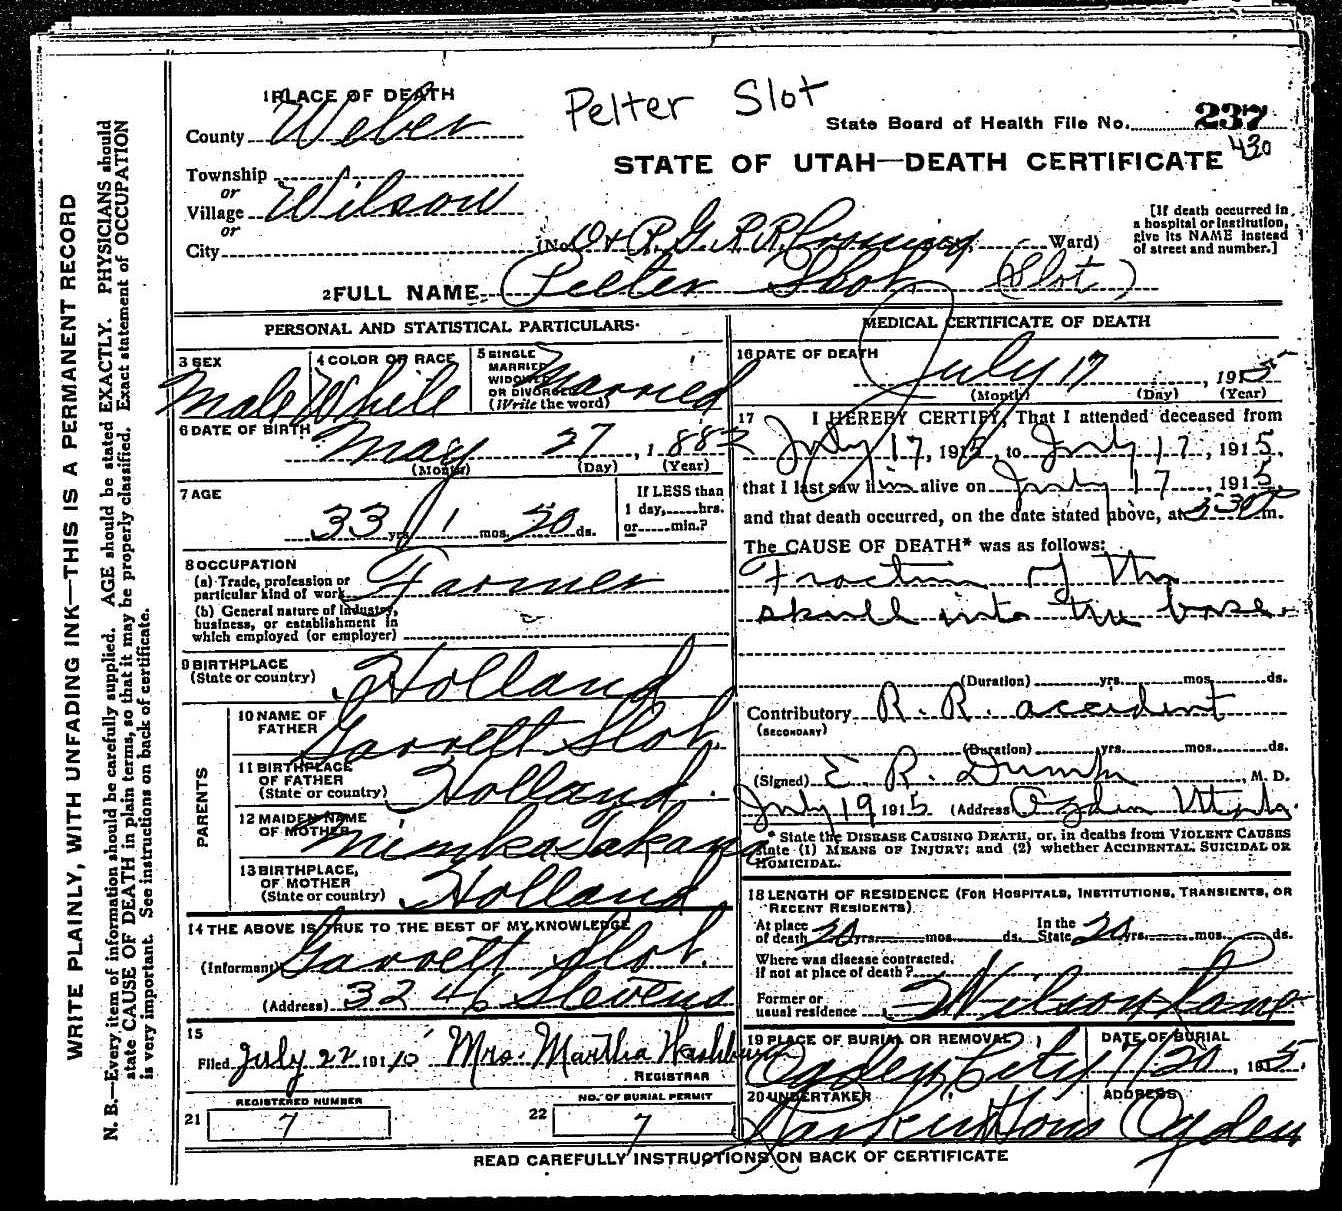 Pelter Slot
1 PLACE OF DEATH
County Weber
State Board of Health File No. 237
430
STATE OF UTAH—DEATH CERTIFICATE
Township
or
Village Wilson
or
City
(No. O & R. G. R. R. Crossing Ward)
[If death occurred in a hospital or institution, give its NAME instead of street and number.]
2 FULL NAME Pelter Slot (Slot)
PERSONAL AND STATISTICAL PARTICULARS
3 SEX Male
4 COLOR OR RACE White
5 SINGLE MARRIED WIDOWED OR DIVORCED (Write the word) Married
6 DATE OF BIRTH May 27, 1882
(Month) (Day) (Year)
7 AGE 33 yrs. 1 mos. 20 ds.
If LESS than 1 day, hrs. or min.?
8 OCCUPATION
(a) Trade, profession or particular kind of work Farmer
(b) General nature of Industry, business, or establishment in which employed (or employer)
9 BIRTHPLACE (State or country) Holland
PARENTS
10 NAME OF FATHER Garrett Slot
11 BIRTHPLACE OF FATHER (State or country) Holland
12 MAIDEN NAME OF MOTHER
13 BIRTHPLACE, OF MOTHER (State or country) Holland
14 THE ABOVE IS TRUE TO THE BEST OF MY KNOWLEDGE
(Informant) Garrett Slot
(Address) 3246 Stevens
15
Filed July 22 191 Mrs. Martha Washburn
REGISTRAR
21 REGISTERED NUMBER 7
22 NO. OF BURIAL PERMIT 7
MEDICAL CERTIFICATE OF DEATH
16 DATE OF DEATH July 17, 1915
(Month) (Day) (Year)
17 I HEREBY CERTIFY, That I attended deceased from
July 17, 1915, to July 17, 1915,
that I last saw him alive on July 17, 1915,
and that death occurred, on the date stated above, at 530 P m.
The CAUSE OF DEATH* was as follows:
Fraction of the
skull into the base.
(Duration) yrs. mos. ds.
Contributory R. R. accident
(SECONDARY)
(Duration) yrs. mos. ds.
(Signed) E. R. Dumke, M. D.
July 19 1915 (Address) Ogden Utah.
* State the DISEASE CAUSING DEATH, or, in deaths from VIOLENT CAUSES state (1) MEANS OF INJURY; and (2) whether ACCIDENTAL, SUICIDAL OR HOMICIDAL.
18 LENGTH OF RESIDENCE (FOR HOSPITALS, INSTITUTIONS, TRANSIENTS, OR RECENT RESIDENTS)
At place of death 20 yrs. mos. ds. In the State 20 yrs. mos. ds.
Where was disease contracted, if not at place of death?
Former or usual residence Wilson Lane
19 PLACE OF BURIAL OR REMOVAL Ogden City
DATE OF BURIAL 7/20, 1915.
20 UNDERTAKER Larkin & Sons
ADDRESS Ogden
READ CAREFULLY INSTRUCTIONS ON BACK OF CERTIFICATE
WRITE PLAINLY, WITH UNFADING INK—THIS IS A PERMANENT RECORD
N. B.—Every item of information should be carefully supplied. AGE should be stated EXACTLY. PHYSICIANS should
state CAUSE OF DEATH in plain terms, so that it may be properly classified. Exact statement of OCCUPATION
is very important. See instructions on back of certificate.